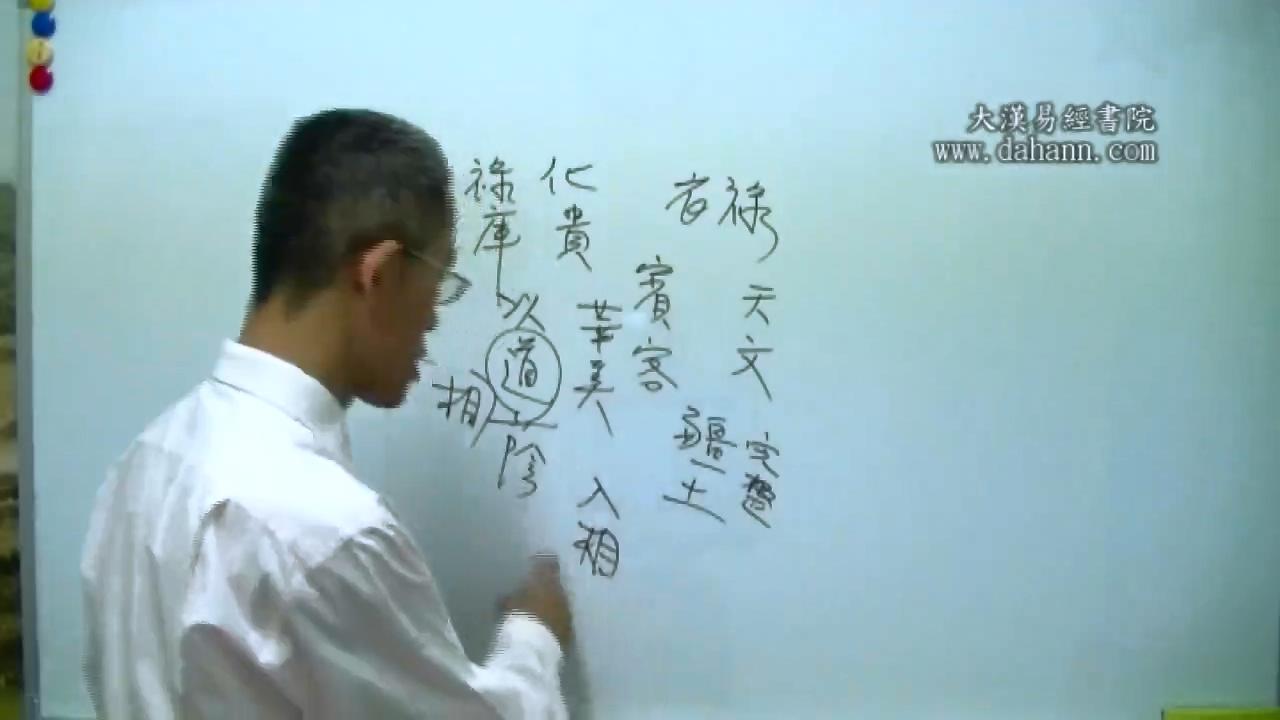 大漢易經書院
www.dahann.com
祿 天文 完整
者
賓客 疆土
化貴 華美 入相
祿庫 以道 陰
相